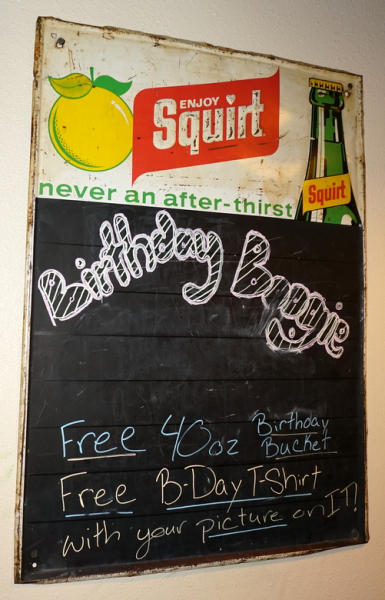 ENJOY
Squirt
Squirt
never an after-thirst
Birthday Boogie
Free 40oz Birthday Bucket
Free B-Day T-Shirt
with your picture on IT!